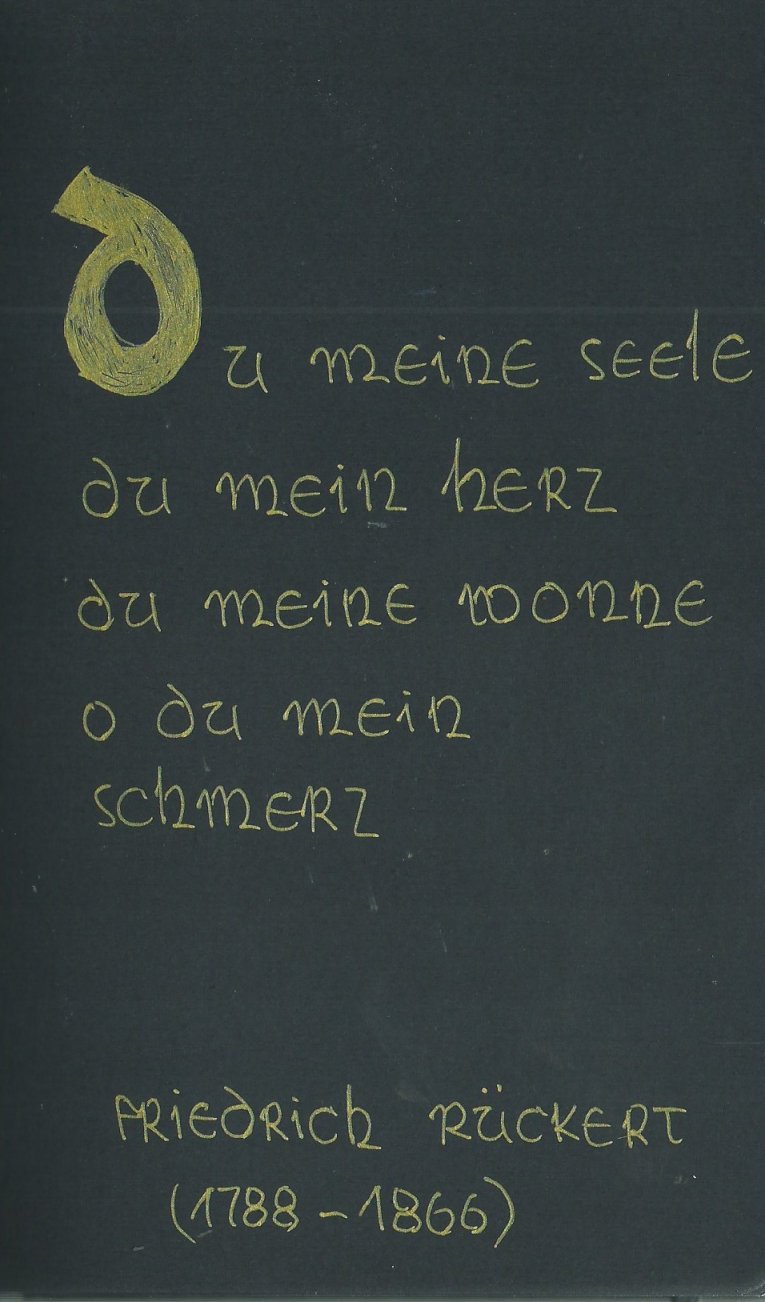 Du meine seele
du mein herz
du meine wonne
o du mein
schmerz
Friedrich Rückert
(1788 - 1866)